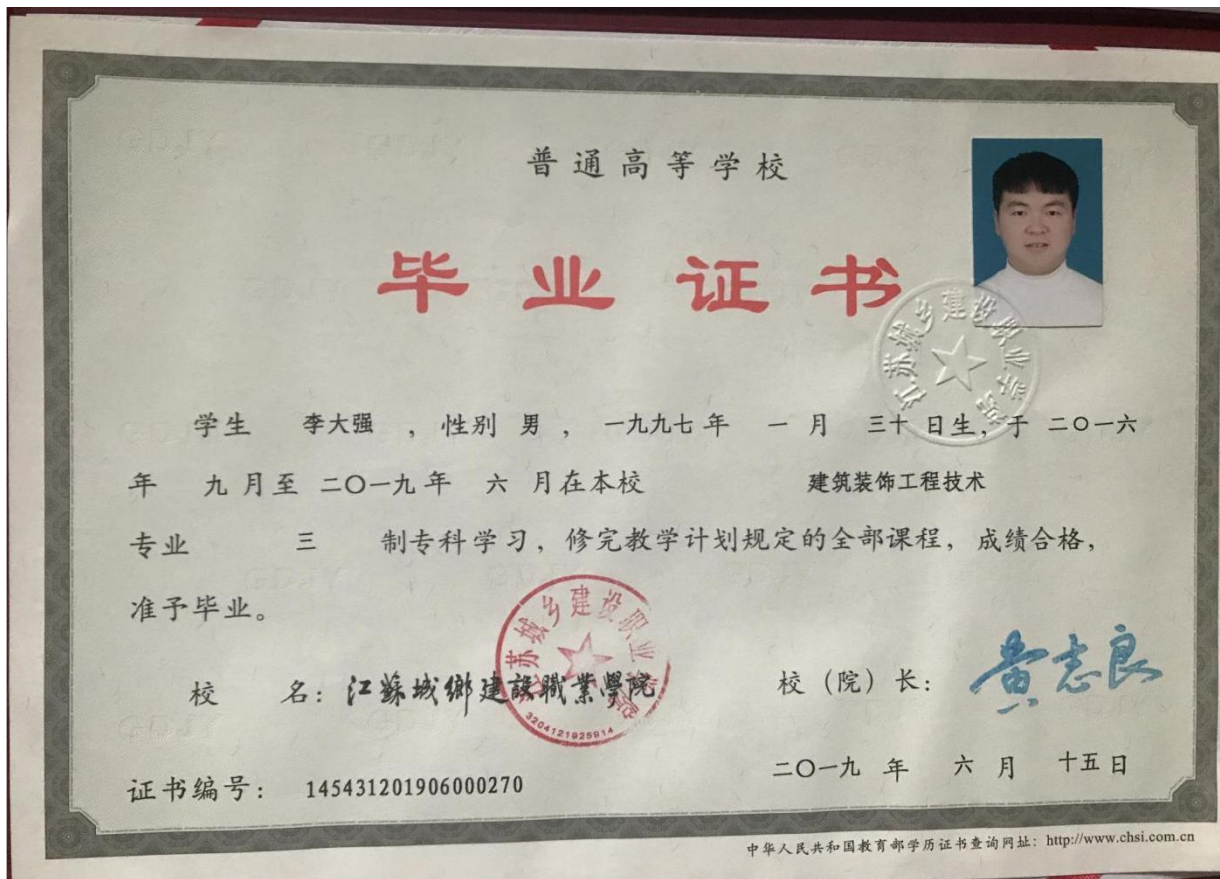 普通高等学校
毕业证书
江苏城乡建设职业学院
学生 李大强 , 性别 男 , 一九九七 年 一 月 三十 日生, 于 二〇一六
年 九 月至 二〇一九 年 六 月在本校 建筑装饰工程技术
专业 三 制专科学习, 修完教学计划规定的全部课程, 成绩合格,
准予毕业。
江苏城乡建设职业学院
3204121925914
校 名: 江蘇城鄉建設職業學院 校 (院) 长: 黄志良
二〇一九 年 六 月 十五 日
证书编号: 145431201906000270
中华人民共和国教育部学历证书查询网址: http://www.chsi.com.cn